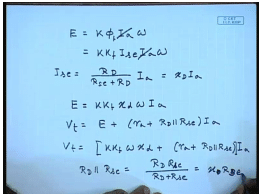 E = K φ₁ I̶a̶ ω
= K K_f I_se I̶a̶ ω
I_se = R_D / (R_se + R_D) I_a = x_D I_a
E = K K_f x_d ω I_a
V_t = E + (r_a + R_D || R_se) I_a
V_t = [K K_f ω x_d + (r_a + R_D || R_se)] I_a
R_D || R_se = R_D R_se / (R_D + R_se) = x_D R_se